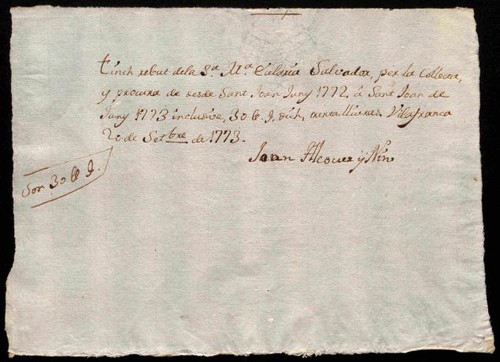 Tinch rebut dela S.ra M.a Eulària Salvador, per la Collecta,
y procura de desde Sant Joan Juny 1772, á Sant Joan de
Juny 1773 inclusive, 30 ll. dich, trenta lliuras, Vilafranca
20 de Setbre de 1773.
Joan Alcover y
Son 30 ll.